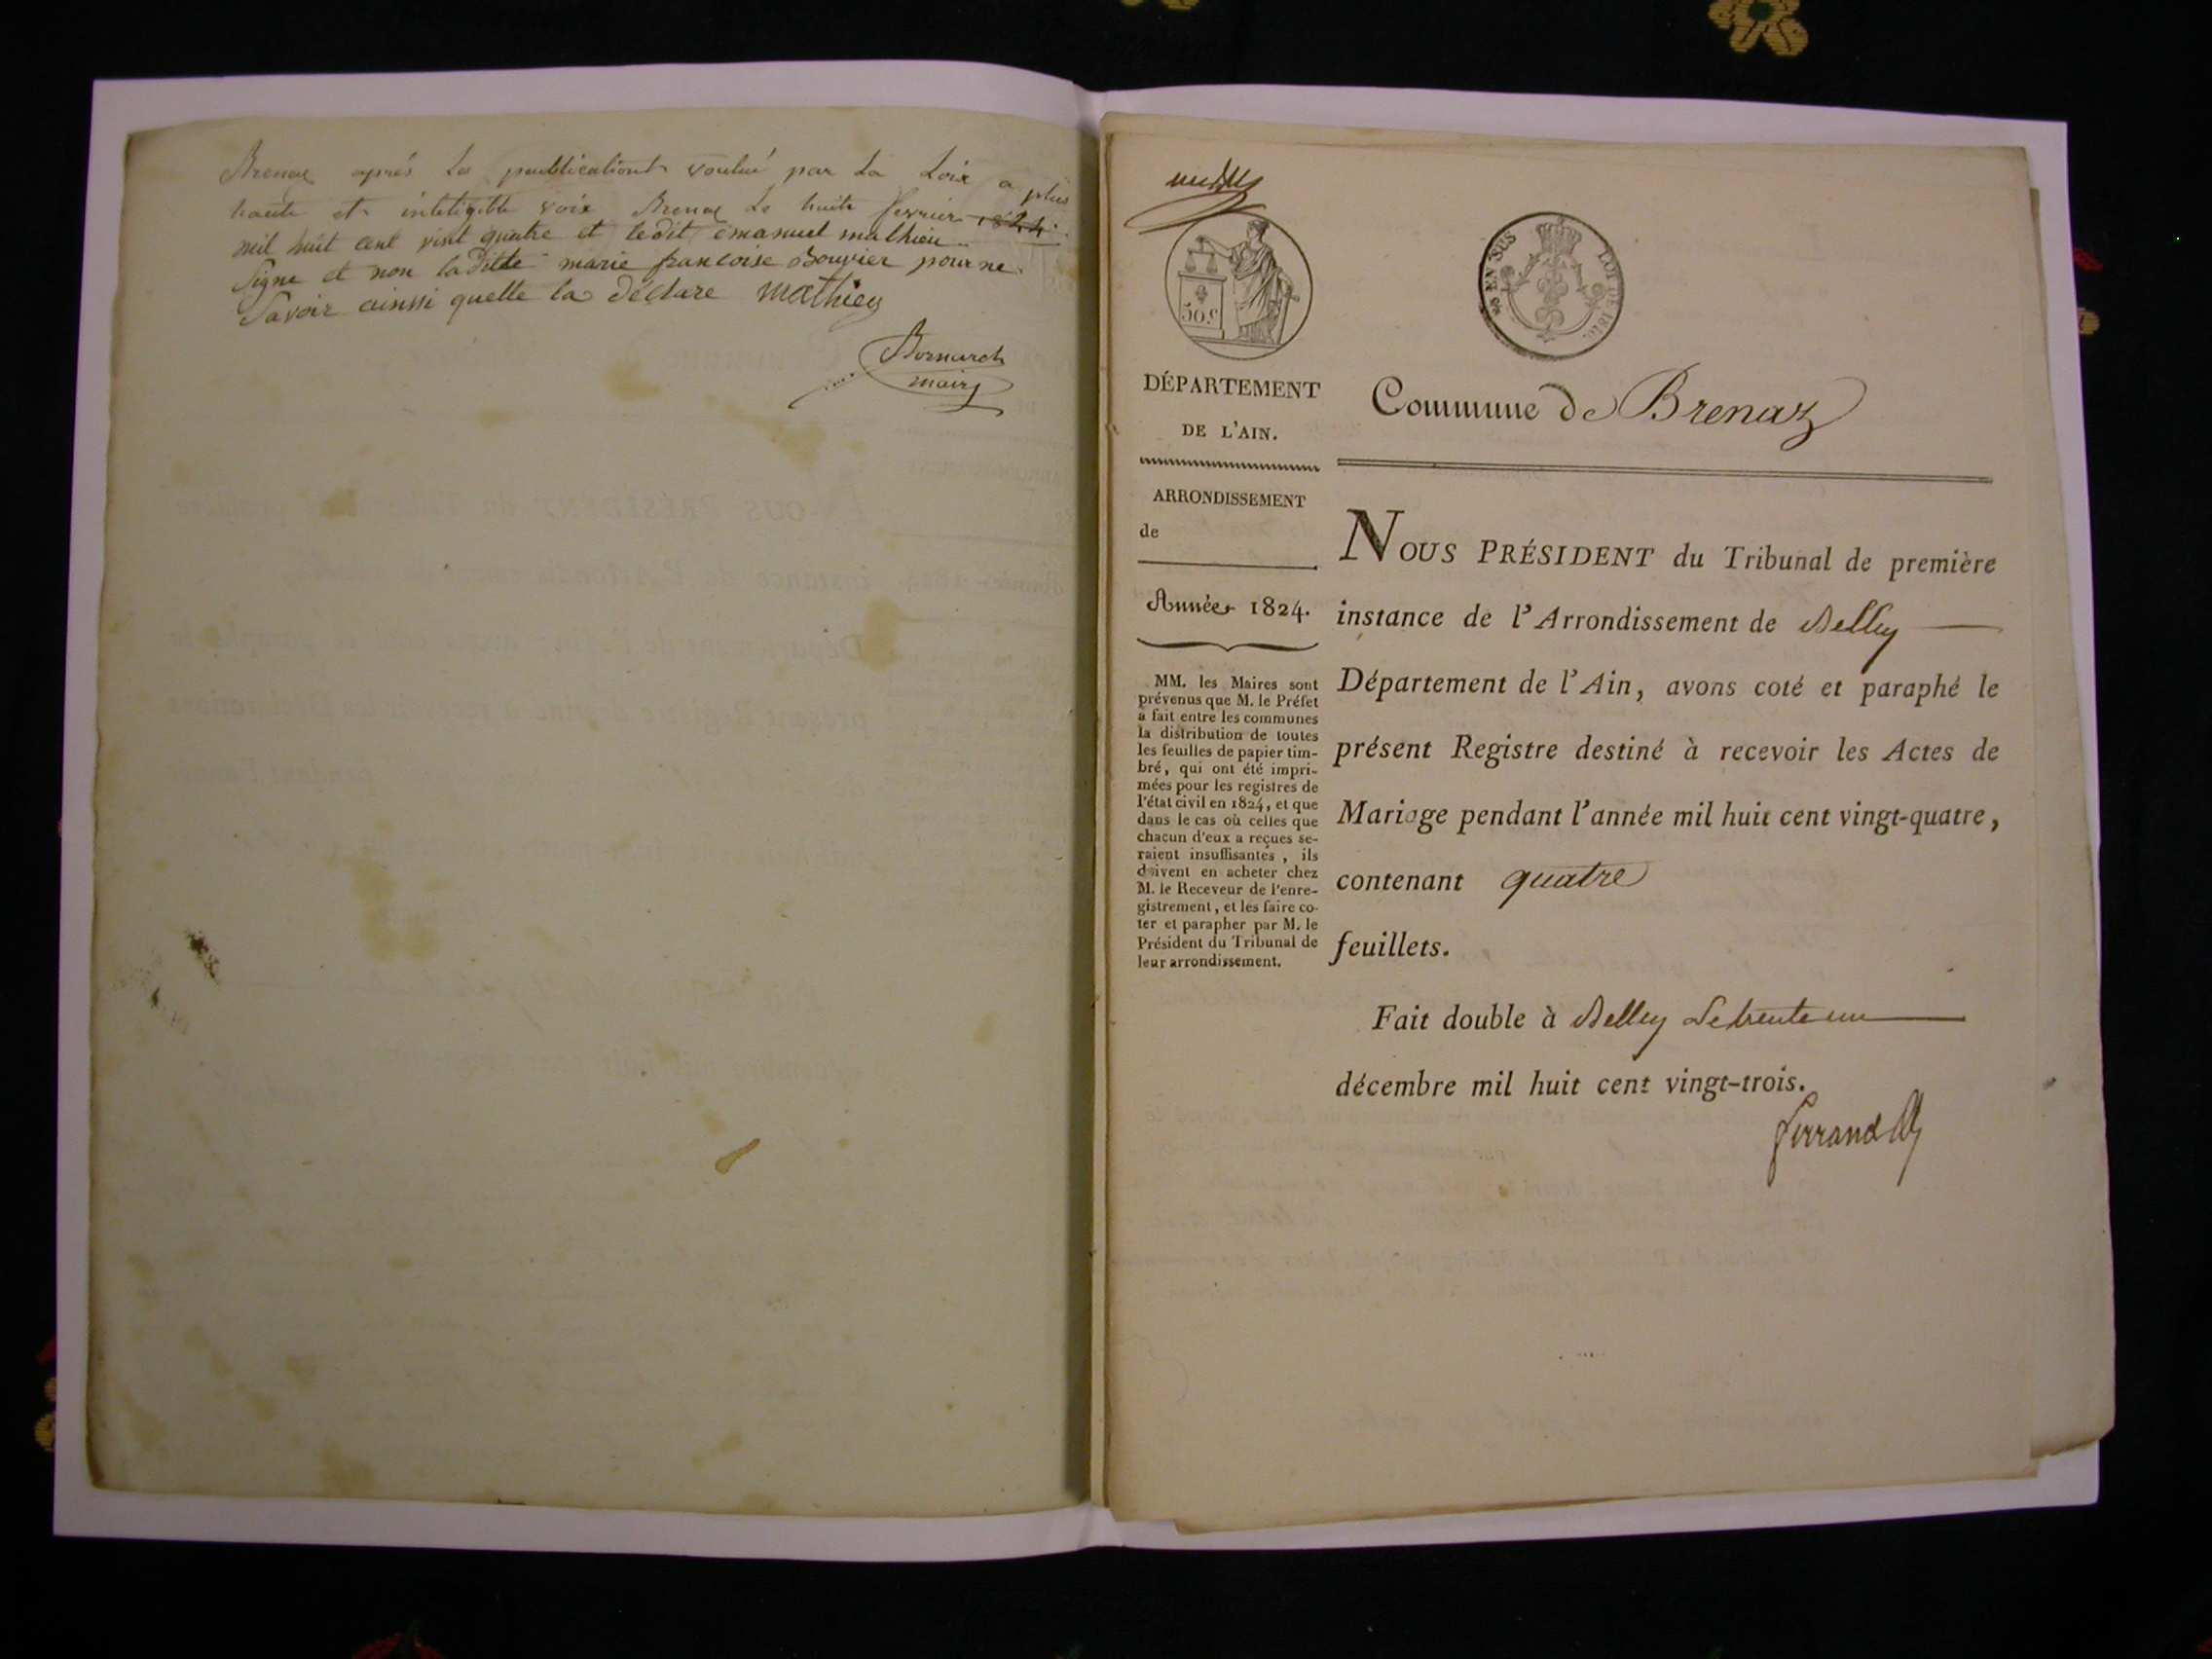 Brenaz aprés les peublicationt voulué par la Loix a plus
haute et inteligible voix Brenaz Le huite fevrier 1824.
mil huit cent vint quatre et ledit emanuel mathieu
signe et non laditte marie francoise Bouvier pour ne
Savoir ainssi quelle la déclare Mathieu
Bornarel
maire
50 c.
DÉPARTEMENT
DE L'AIN.
ARRONDISSEMENT
de
Année 1824.
MM. les Maires sont
prévenus que M. le Préfet
a fait entre les communes
la distribution de toutes
les feuilles de papier tim-
bré, qui ont été impri-
mées pour les registres de
l'état civil en 1824, et que
dans le cas où celles que
chacun d'eux a reçues se-
raient insuffisantes, ils
doivent en acheter chez
M. le Receveur de l'enre-
gistrement, et les faire co-
ter et parapher par M. le
Président du Tribunal de
leur arrondissement.
EN SUS LOI DE 1816.
Commune de Brenaz
NOUS PRÉSIDENT du Tribunal de première
instance de l'Arrondissement de Belley
Département de l'Ain, avons coté et paraphé le
présent Registre destiné à recevoir les Actes de
Mariage pendant l'année mil huit cent vingt-quatre,
contenant quatre
feuillets.
Fait double à Belley Le trente un
décembre mil huit cent vingt-trois.
Ferrand